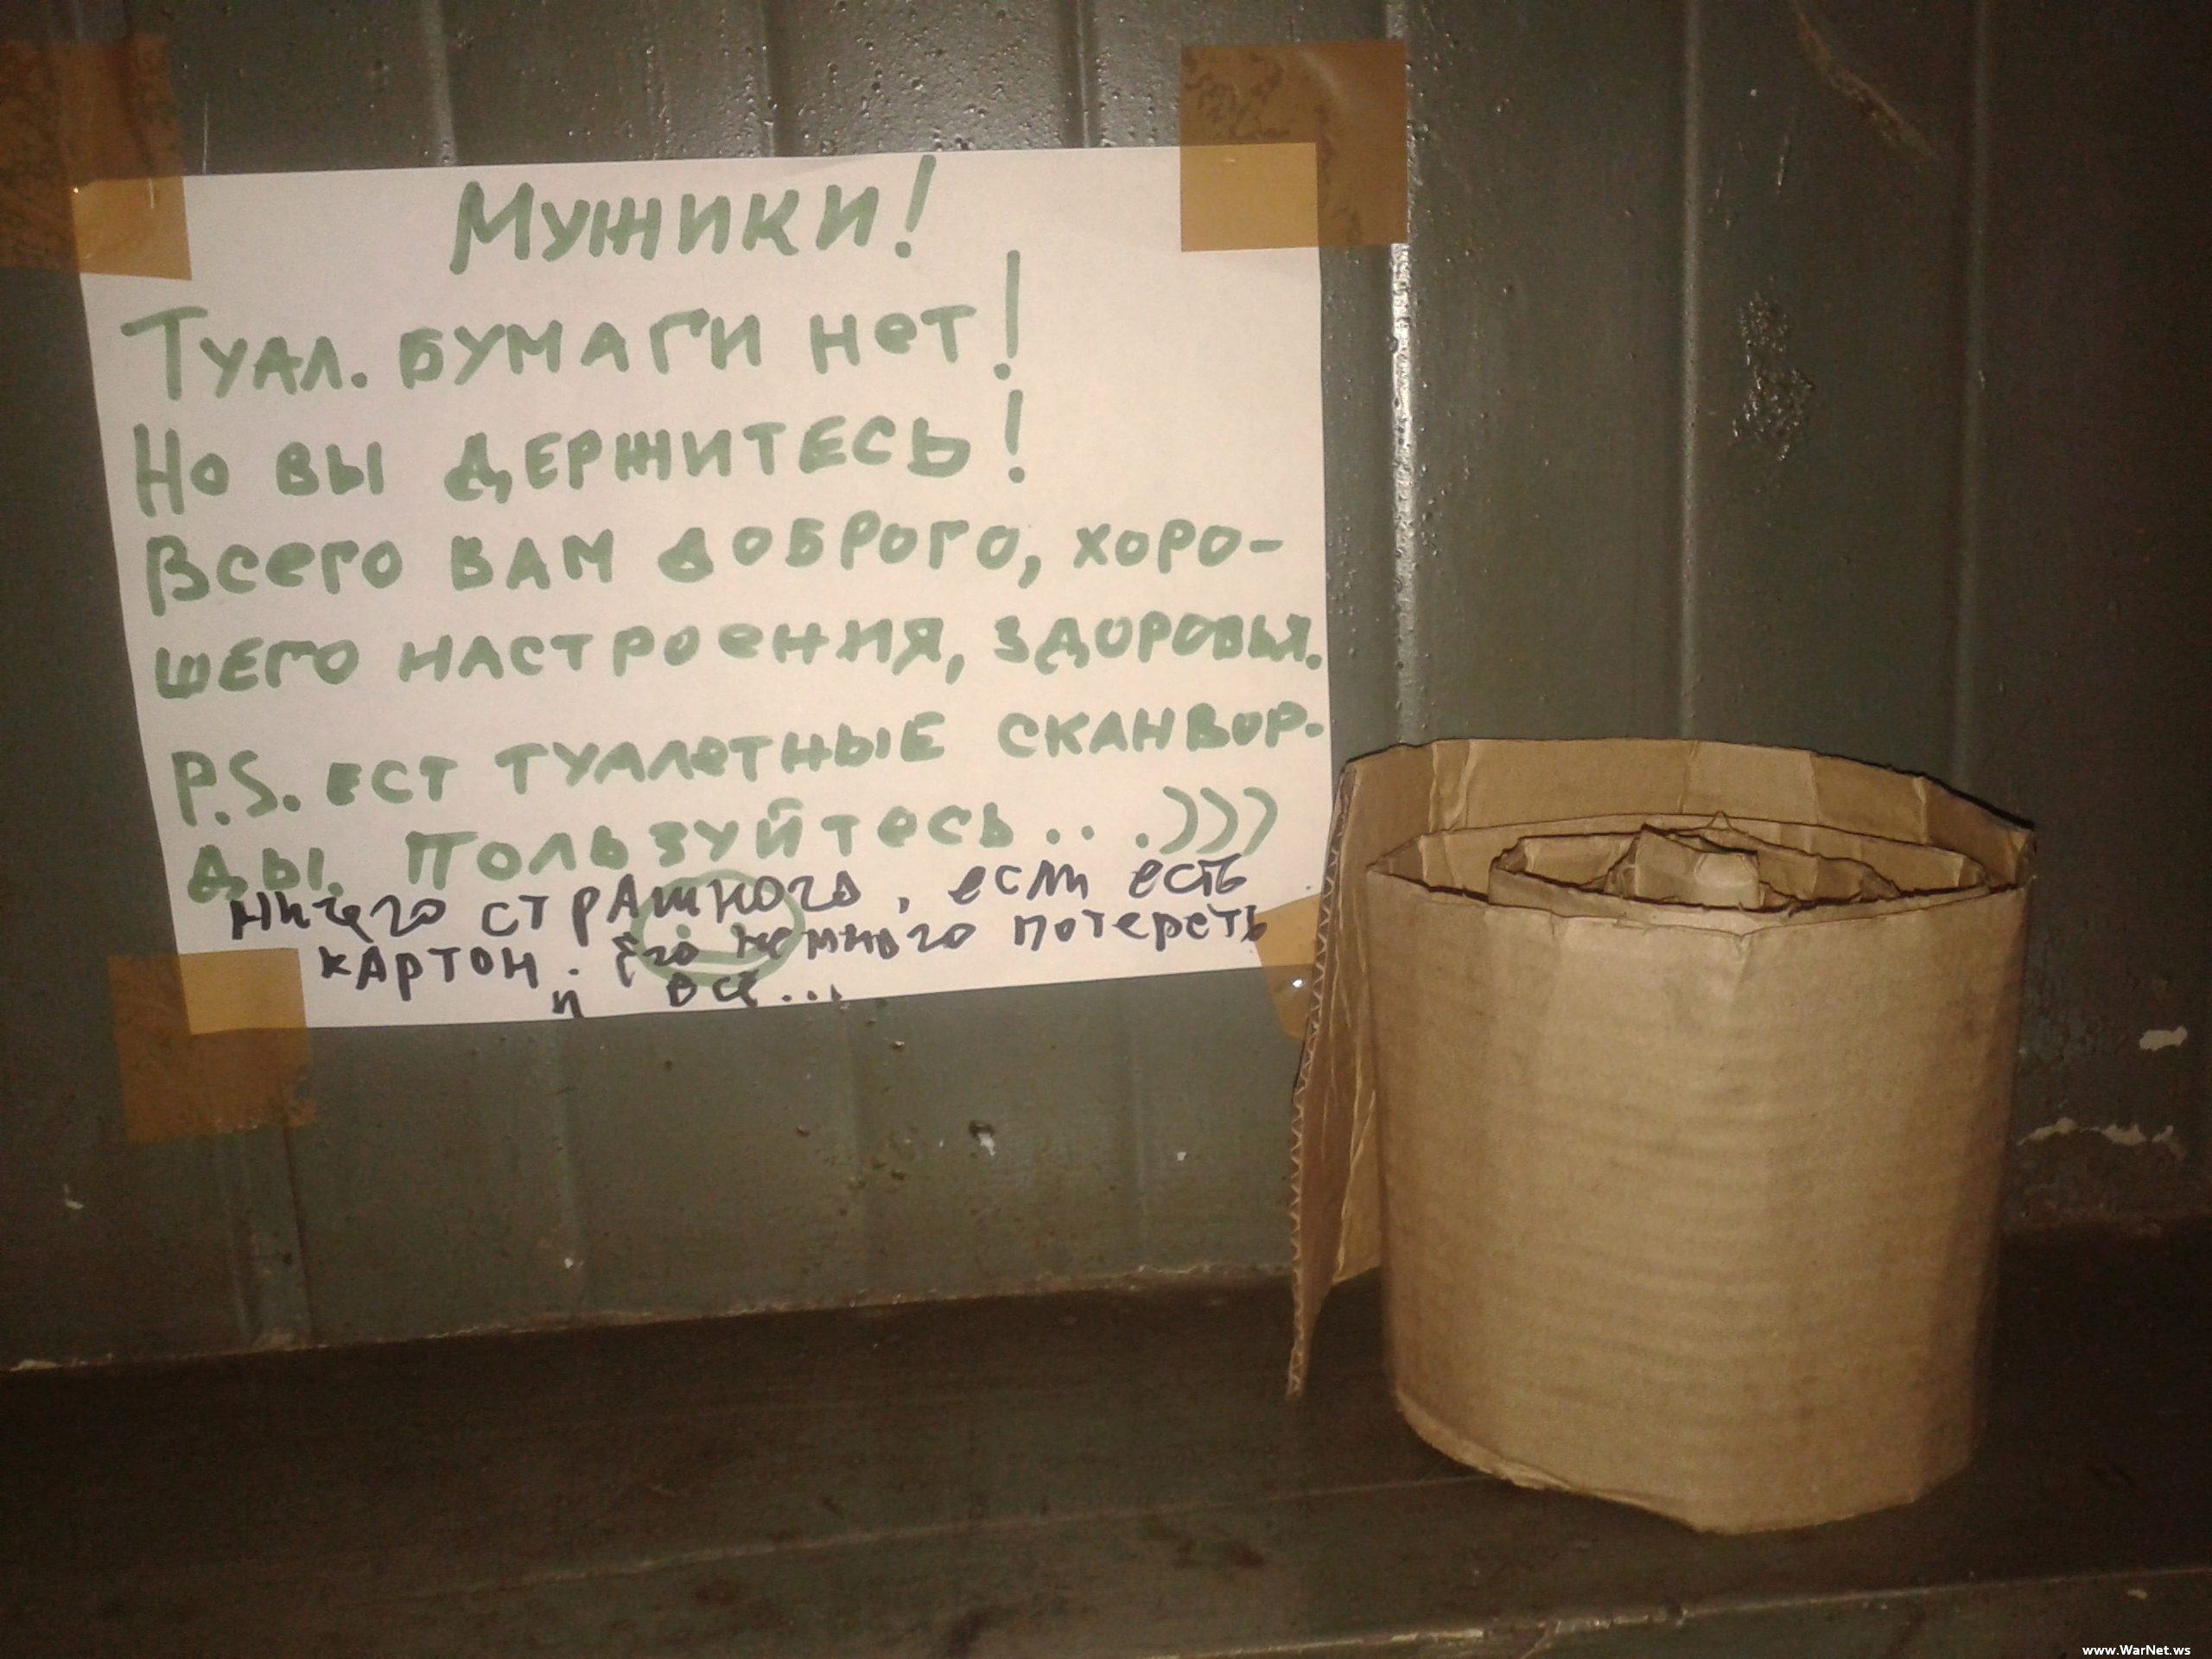 Мужики!
Туал. бумаги нет!
Но вы держитесь!
Всего вам доброго, хоро-
шего настроения, здоровья.
P.S. ест туалетные сканвор-
ды. Пользуйтесь...)))
Ничего страшного, если есть
картон. Его немного потереть
и все...
www.WarNet.ws